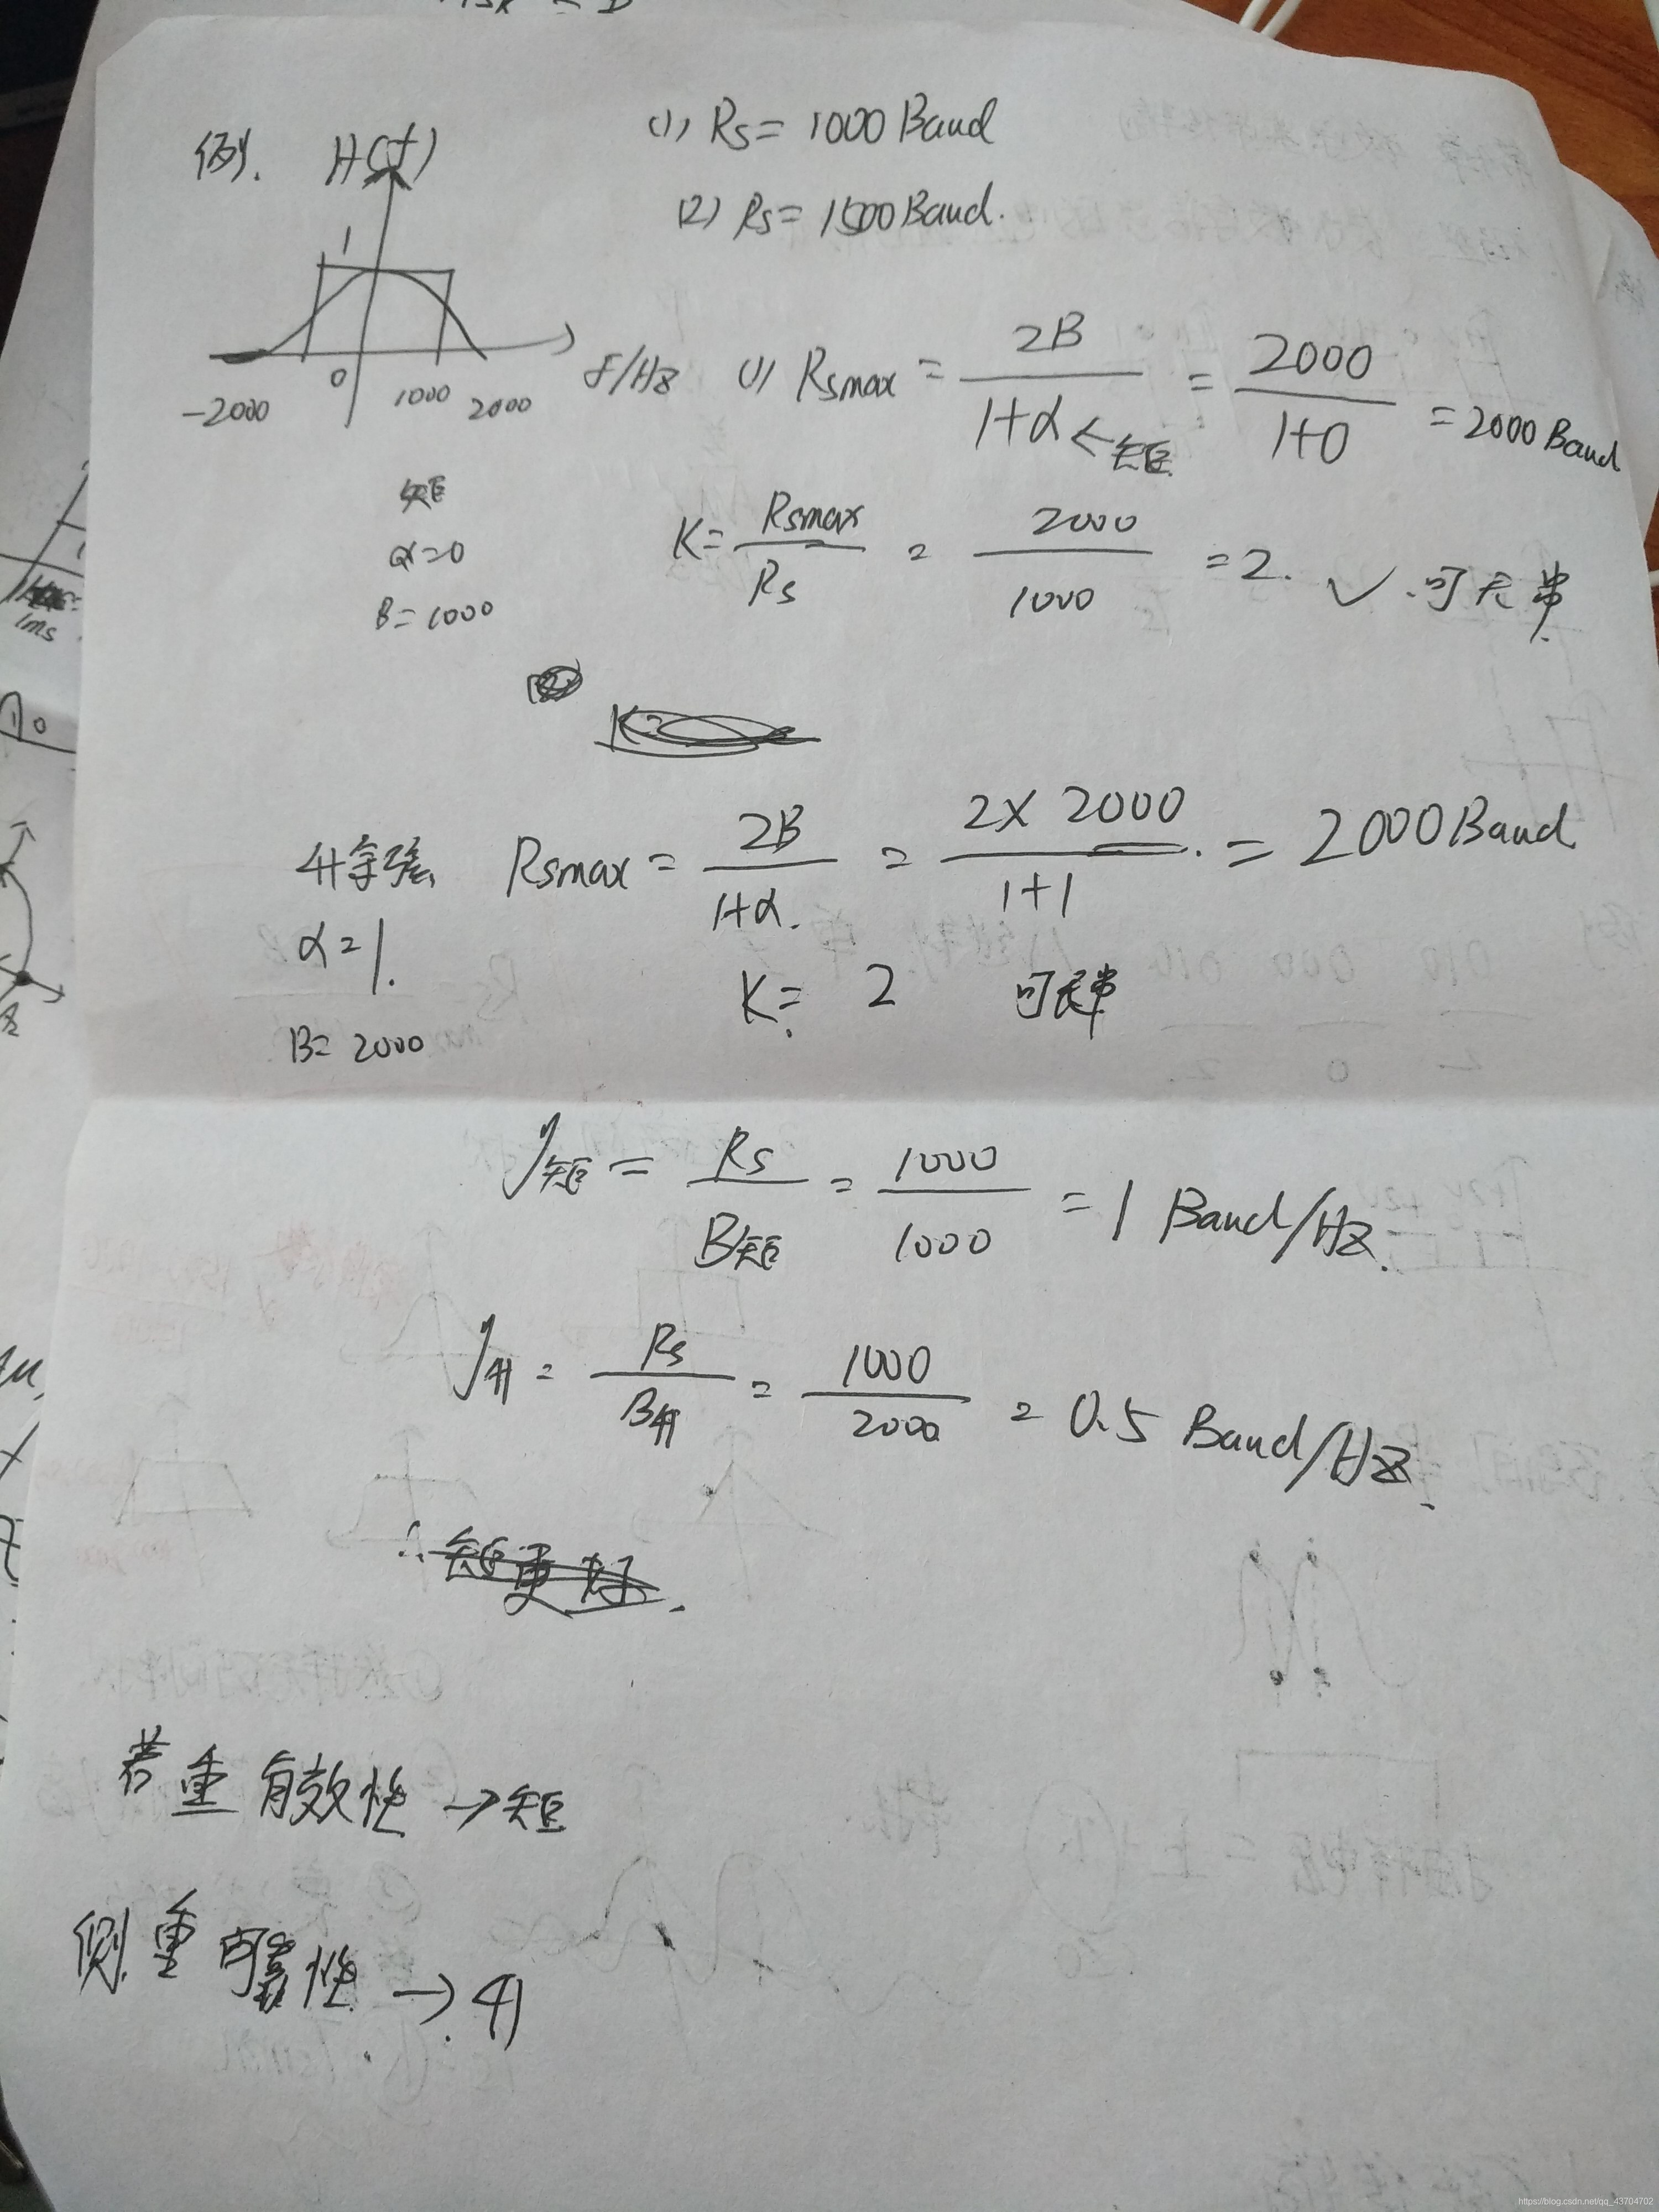 例. H(f)
(1) Rs = 1000 Baud
(2) Rs = 1500 Baud.
1
-2000 0 1000 2000 f/Hz
(1) Rsmax = 2B / 1+α ← 矩 = 2000 / 1+0 = 2000 Baud
矩
α=0
B=1000
K = Rsmax / Rs = 2000 / 1000 = 2. ✓.可无串
升余弦 Rsmax = 2B / 1+α. = 2×2000 / 1+1 = 2000 Baud
α=1.
K= 2 可无串
B= 2000
η矩 = Rs / B矩 = 1000 / 1000 = 1 Baud/Hz.
η升 = Rs / B升 = 1000 / 2000 = 0.5 Baud/Hz.
∴ 矩更好.
若重有效性 → 矩
侧重可靠性 → 升
1ms
https://blog.csdn.net/qq_43704702